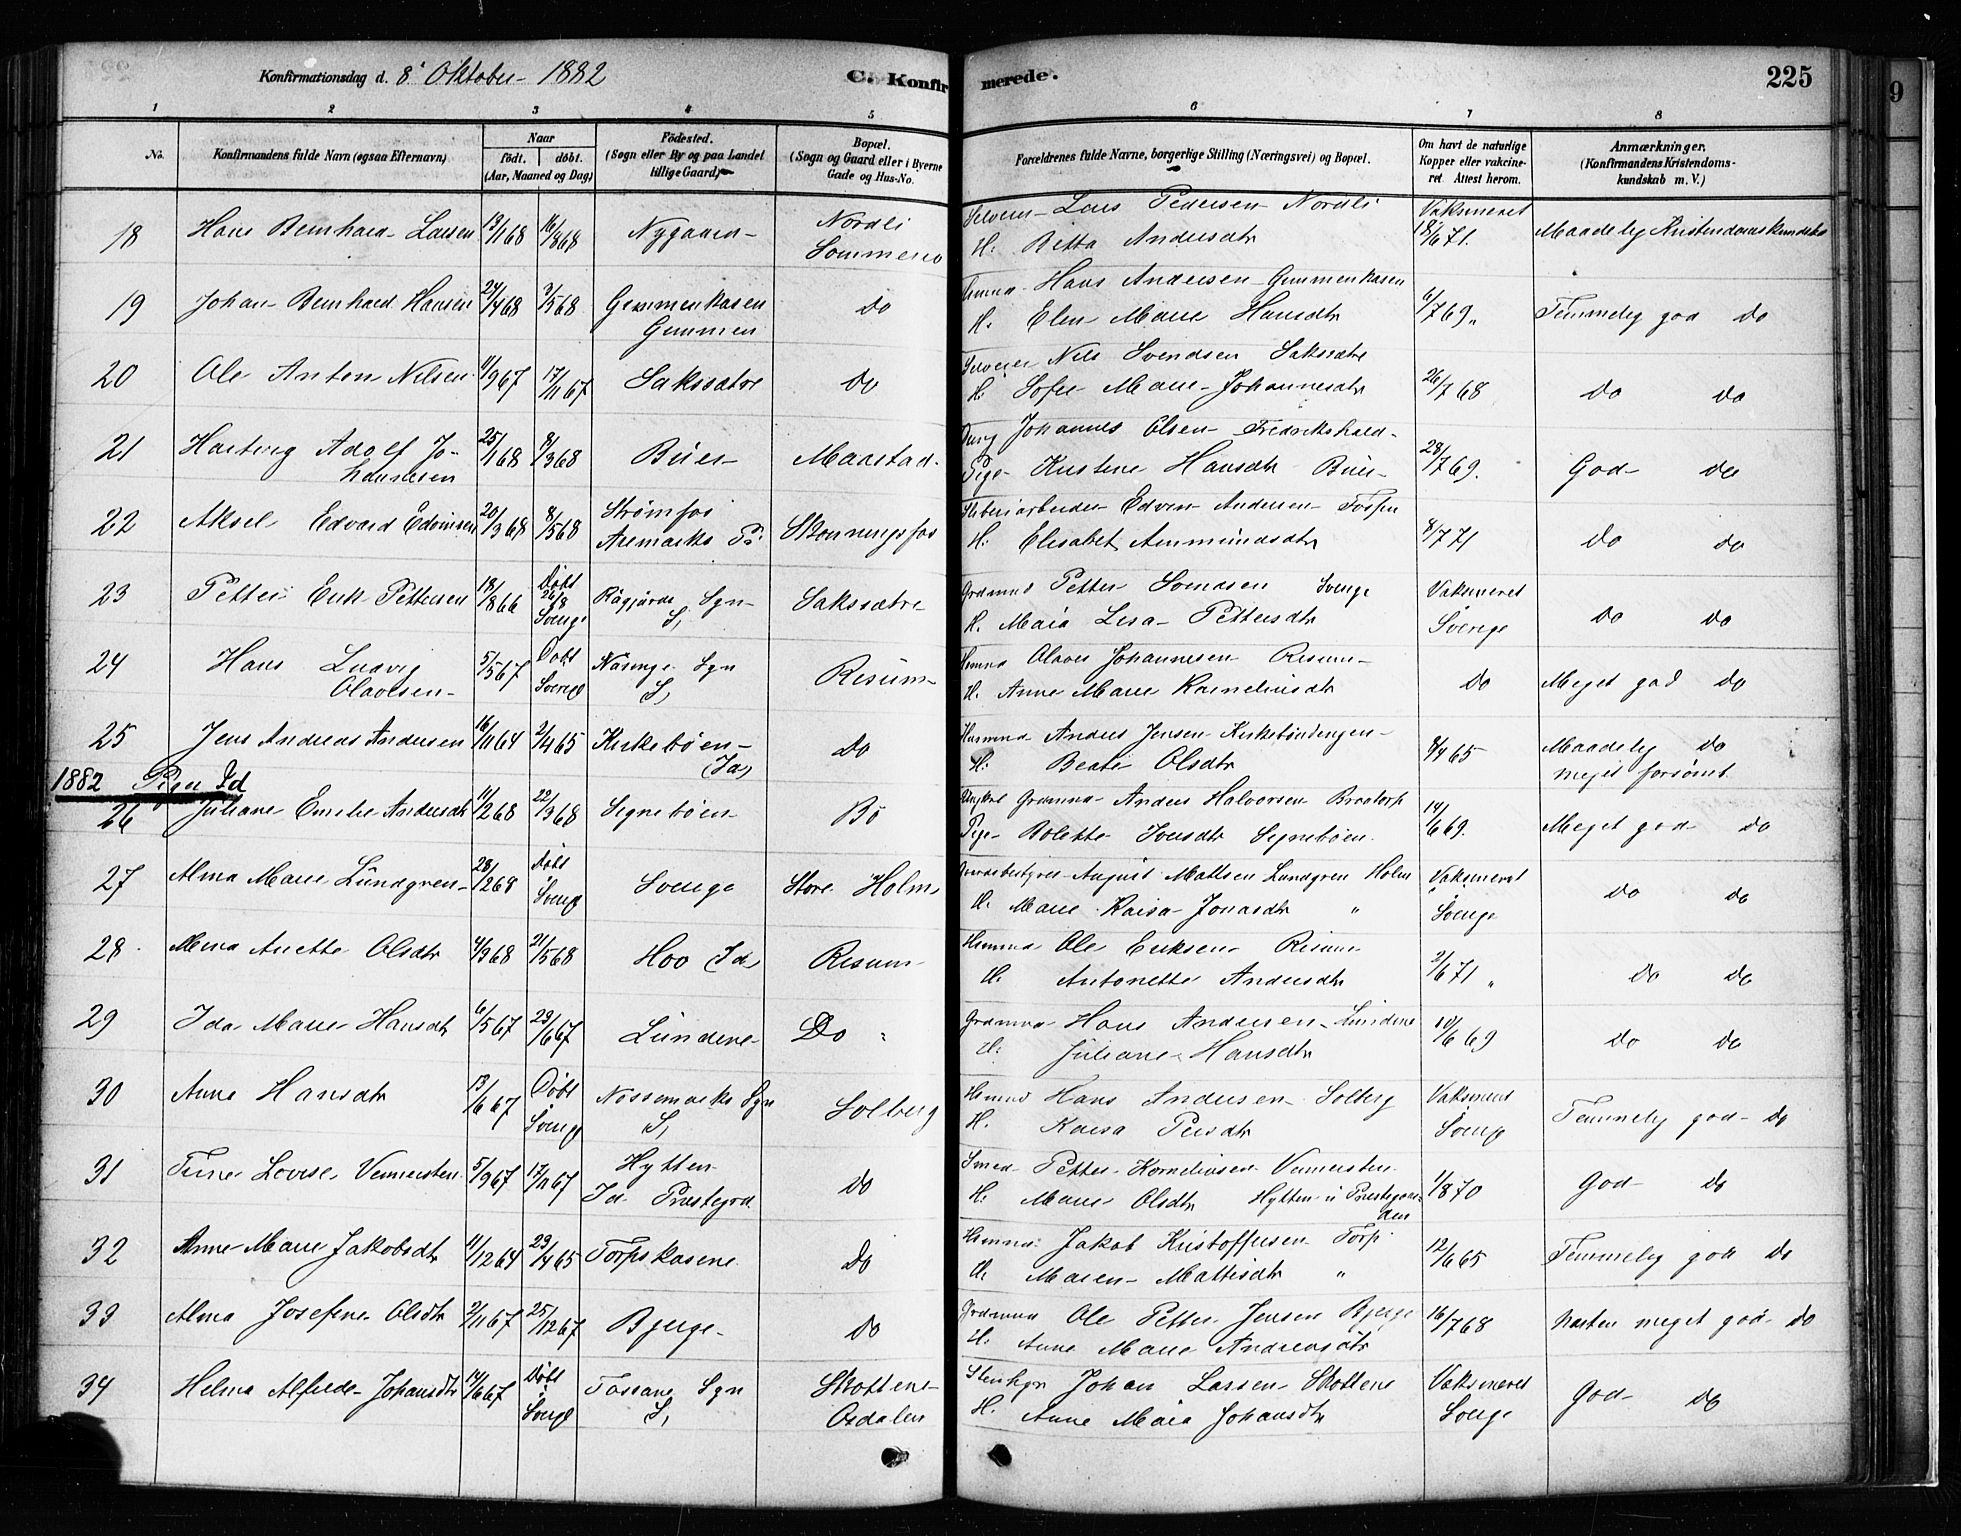 Konfirmationsdag d. 8 Oktober 1882 C. Konfirmerede. 225 9
1 2 3 4 5 6 7 8
No. Konfirmandens fulde Navn (ogsaa Efternavn). Naar født. døbt. (Aar, Maaned og Dag) Fødested. (Sogn eller By og paa Landet tillige Gaard). Bopæl. (Sogn og Gaard eller i Byerne Gade og Hus-No. Forældrenes fulde Navne, borgerlige Stilling (Næringsvei) og Bopæl. Om havt de naturlige Kopper eller vakcineret. Attest herom. Anmærkninger. (Konfirmandens Kristendomskundskab m. V.)
18 Hans Bernhard Larsen 13/1 68 16/8 68 Nygaard Nordli Sommerø Lars Pedersen Nordli Vaksineret
H: Berta Andersdtr 18/6 71. Maadelig Kristendomskundskab
19 Johan Bernhard Hansen 24/4 68 3/5 68 Gemmenkasen Gemmen do Hans Andersen Gemmenkasen
H. Elen Marie Hansdtr 6/7 69 Temmelig god do
20 Ole Anton Nilsen 11/9 67 17/11 67 Sakssætre do Selveier Nils Svendsen Sakssætre
H: Sofie Marie Johannesdtr 26/7 68 do do
21 Hartvig Adolf Johannesen 25/1 68 8/3 68 Buer Maastad Ung Johannes Olsen Fredrikshald
Pige Kristine Hansdtr Buer 28/7 69. God do
22 Aksel Edvard Edvinsen 20/3 68 8/5 68 Strømfos Aremarks P: Skonningsfos Edvin Andersen Fosser
H: Elisabet Ammundsdtr 8/7 71 do do
23 Petter Erik Pettersen 18/8 66 Døbt 26/8 Sverige Sgn S, Sakssætre Grdmnd Petter Svendsen Sverige
H. Maia Lisa Pettersdtr Vaksineret Sverige do do
24 Hans Ludvig Olavesen 5/5 67 Døbt Sverige Näsinge Sgn S, Resum Olaves Johannesen Resum
H. Anne Marie Kornelinsdtr do Meget god do
25 Jens Andreas Andersen 16/11 64 2/4 65 Kirkebøen (Id) do Husmnd Anders Jensen
H: Beate Olsdtr 8/4 65 Maadelig do meget forsømt
1882 Piger Id
26 Juliane Emilie Andersdtr 11/2 68 22/3 68 Signebøen Bø Ungkrl Grdmnd Anders Halvorsen Braatorp
Pige Bolette Iversdtr Signebøen 14/6 69. Meget god do
27 Alma Marie Lundgren 28/1 68 Døbt Sverige Sverige Store Holm August Mattsen Lundgren Holm
H. Marie Kaisa Jonasdtr " Vaksineret Sverige do do
28 Anette Olsdtr 4/3 68 21/5 68 Hov (Id) Resum Ole Eriksen Resum
H. Antonette Andersdtr 2/6 71 " do do
29 Ida Marie Hansdtr 6/5 67 29/6 67 Lundene Do Grdmnd Hans Andersen Lundene
H: Juliane Hansdtr 10/6 69 do do
30 Anne Hansdtr 13/6 67 Døbt Sverige Nössemarks Sgn S, Solberg Hans Andersen Solberg
H. Kaisa Persdtr Vaksineret Sverige Temmelig god do
31 Lovise Vennersten 5/9 67 17/11 67 Hytten Id Prestegrd. do Smed Petter Kornelinsen Vennersten
H. Marie Olsdtr Hytten u Prestegaarden 1/8 70 God do
32 Anne Marie Jakobsdtr 11/12 64 23/4 65 Torpskasene do Jakob Kristoffersen Torp
H. Maren Mattisdtr " 12/6 65 Temmelig god do
33 Alma Josefine Olsdtr 2/11 67 25/12 67 Bjerge do Grdmnd Ole Petter Jensen Bjerge
H. Anne Marie Andreasdtr 16/7 68 næsten meget god do
34 Helma Alfrede Johansdtr 14/6 67 Døbt Sverige Tossane Sgn S, Skottene Osdalen Stenhgr Johan Larsen Skottene
H. Anne Maia Johansdtr Vaksineret Sverige God do